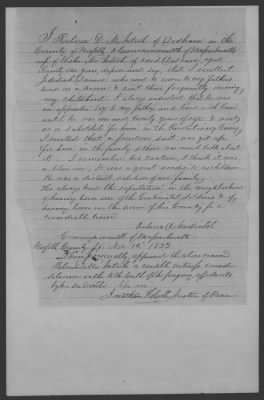 I Rebecca D. McIntosh of Dedham in the
County of Norfolk & Commonwealth of Massachusetts
wife of Elisha McIntosh of said Dedham, aged
Seventy six years, depose and say, that I recollect
Jedediah
who used to come to my fathers
house as a
quite frequently during
my childhood. I always understood that he was
an apprentice to my father and lived with him
until he was most twenty years of age & went
as a substitute for him in the Revolutionary Army,
I recollect that a
suit was got up
for him in the family, & there was much talk about
it. I remember his canteen, I think it was
a blue one. It was a great
He was a distant relation of our family.
He always had the reputation in the neighborhood
of having been one of the Continental Soldiers & of
having been in the army of his County for a
considerable time.
Rebecca D. Mackintosh
Commonwealth of Massachusetts
Norfolk County ss. Nov. 12 1855
Then personally appeared the above named
Rebecca McIntosh a credible witness & made
solemn oath to the truth of the foregoing affidavit
by her subscribed. Before me
Justice of Peace